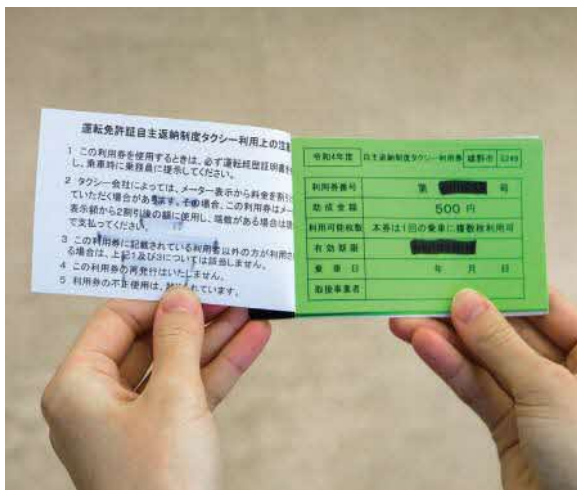 運転免許証自主返納制度タクシー利用上の注意
1 この利用券を使用するときは、必ず運転経歴証明書
し、乗車時に乗務員に提示してください。
2 タクシー会社によっては、メーター表示から料金を割
ていただく場合があります。その場合、この利用券はメー
表示額から2割引後の額に使用し、端数がある場合は
で支払ってください。
3 この利用券に記載されている利用者以外の方が利用
る場合は、上記1及び3については該当しません。
4 この利用券の再発行はいたしません。
5 利用券の不正使用は、 られています。
令和4年度 自主返納制度タクシー利用券 嬉野市
利用券番号 第 号
助成金額 500 円
利用可能枚数 本券は1回の乗車に複数枚利用可
有効期限
乗車日 年 月 日
取扱事業者